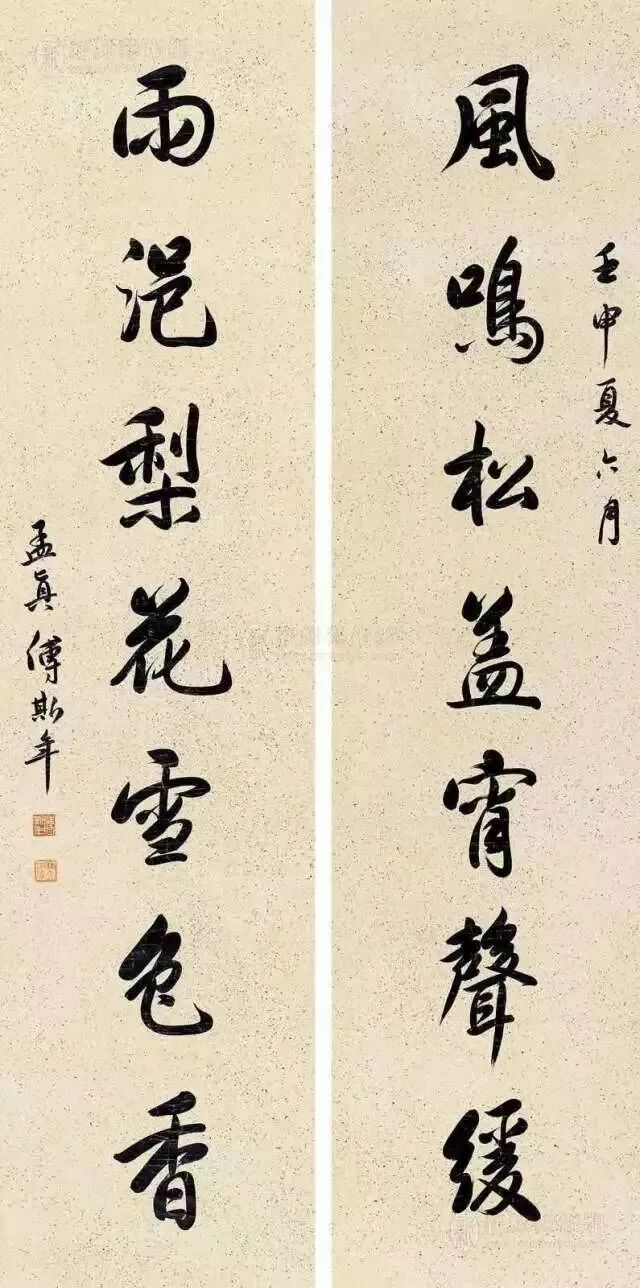 壬申夏六月
風鳴松盖宵聲緩
雨浥梨花雪色香
孟真傅斯年